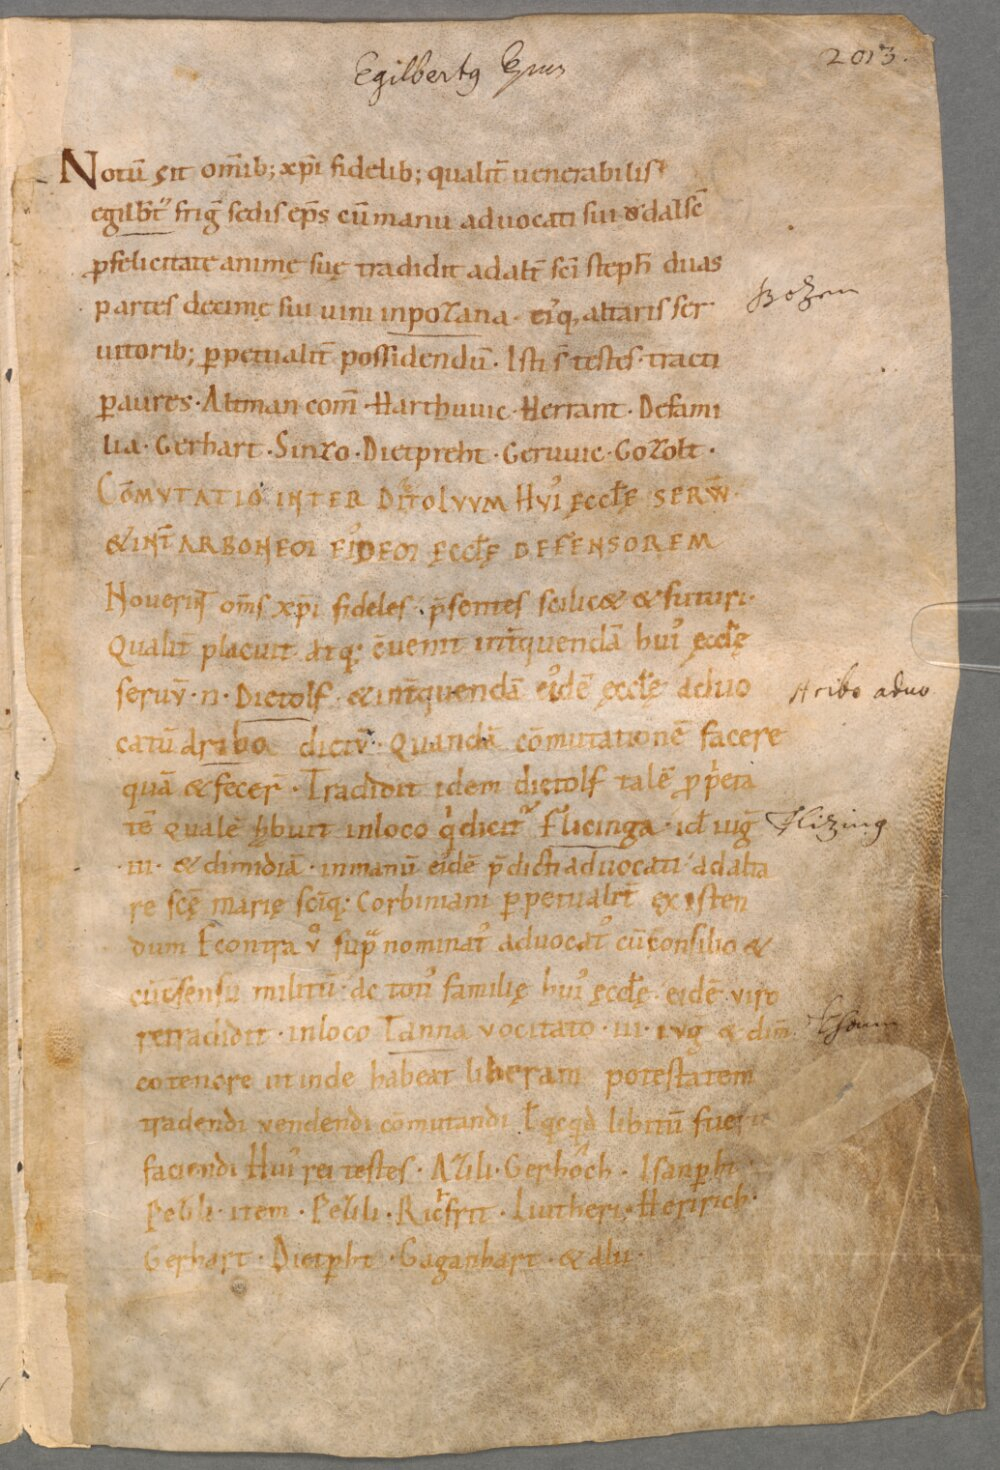 Egilbertꝰ Epus
2013.
Notū sit om̄ib; xp̄i fidelib; qualit̄ uenerabilis
egilb̄t frig̅ sedis ep̄s cū manu aduocati sui
ꝓ felicitate animę suę tradidit ad alt̄ sc̄i steph̄ duas
partes decimę sui uini inpozana · altaris ser
Bozen
uitorib; ꝑpetualit̄ possidendū · Isti s̄ testes · tracti
ꝑ aures · Altman com̄ · Harthuuic · Herrant · De fami
lia · Gerhart · Sinzo · Dietpreht · Geruuic · Gozolt ·
COM̄VTATIO INTER HVI᾽ ĘCCL̄Ę
& INT̄ ĘCCL̄Ę DEFENSOREM
Nouerint om̄s xp̄i fideles · p̄sentes scilic& & futuri ·
Qualit̄ placuit atq; c̄uenit int̄ quendā hui᾽ ęccl̄ę
seruū · n · Dietolf · & int̄ quendā ei᾽dē ęccl̄ę aduo
Aribo aduo
catū aribo dictū · Quandā cōmutationē facere
quā & fecer̄ · Tradidit idem dietolf talē ꝓp̍eta
tē qualē habuit inloco q̍ dicit᷑ Flicinga · id iug̅
Flizing
· iii · & dimidiā · in manū ei᾽dē p̄dicti aduocati ad alta
re sc̄ę marię sc̄iq; Corbiniani ꝑpetualit̄ existen
dum Econtra ù nominat᾽ aduocat᾽ cū consilio &
cū c̄sensu militū · ac toti᾽ familię hui᾽ ęccl̄ę · eidē viro
retradidit · inloco Tanna vocitato · iii · iug̅ & dim̄
eo tenore ut inde habeat liberam potestatem
tradendi vendendi cōmutandi libitū fuerit
faciendi Hui᾽ rei testes · Azili · Gerhoch ·
Pezili · item · Pezili · · Liutheri · Heririch ·
Gerhart · Dietꝑht · Gaganhart · & alii ·